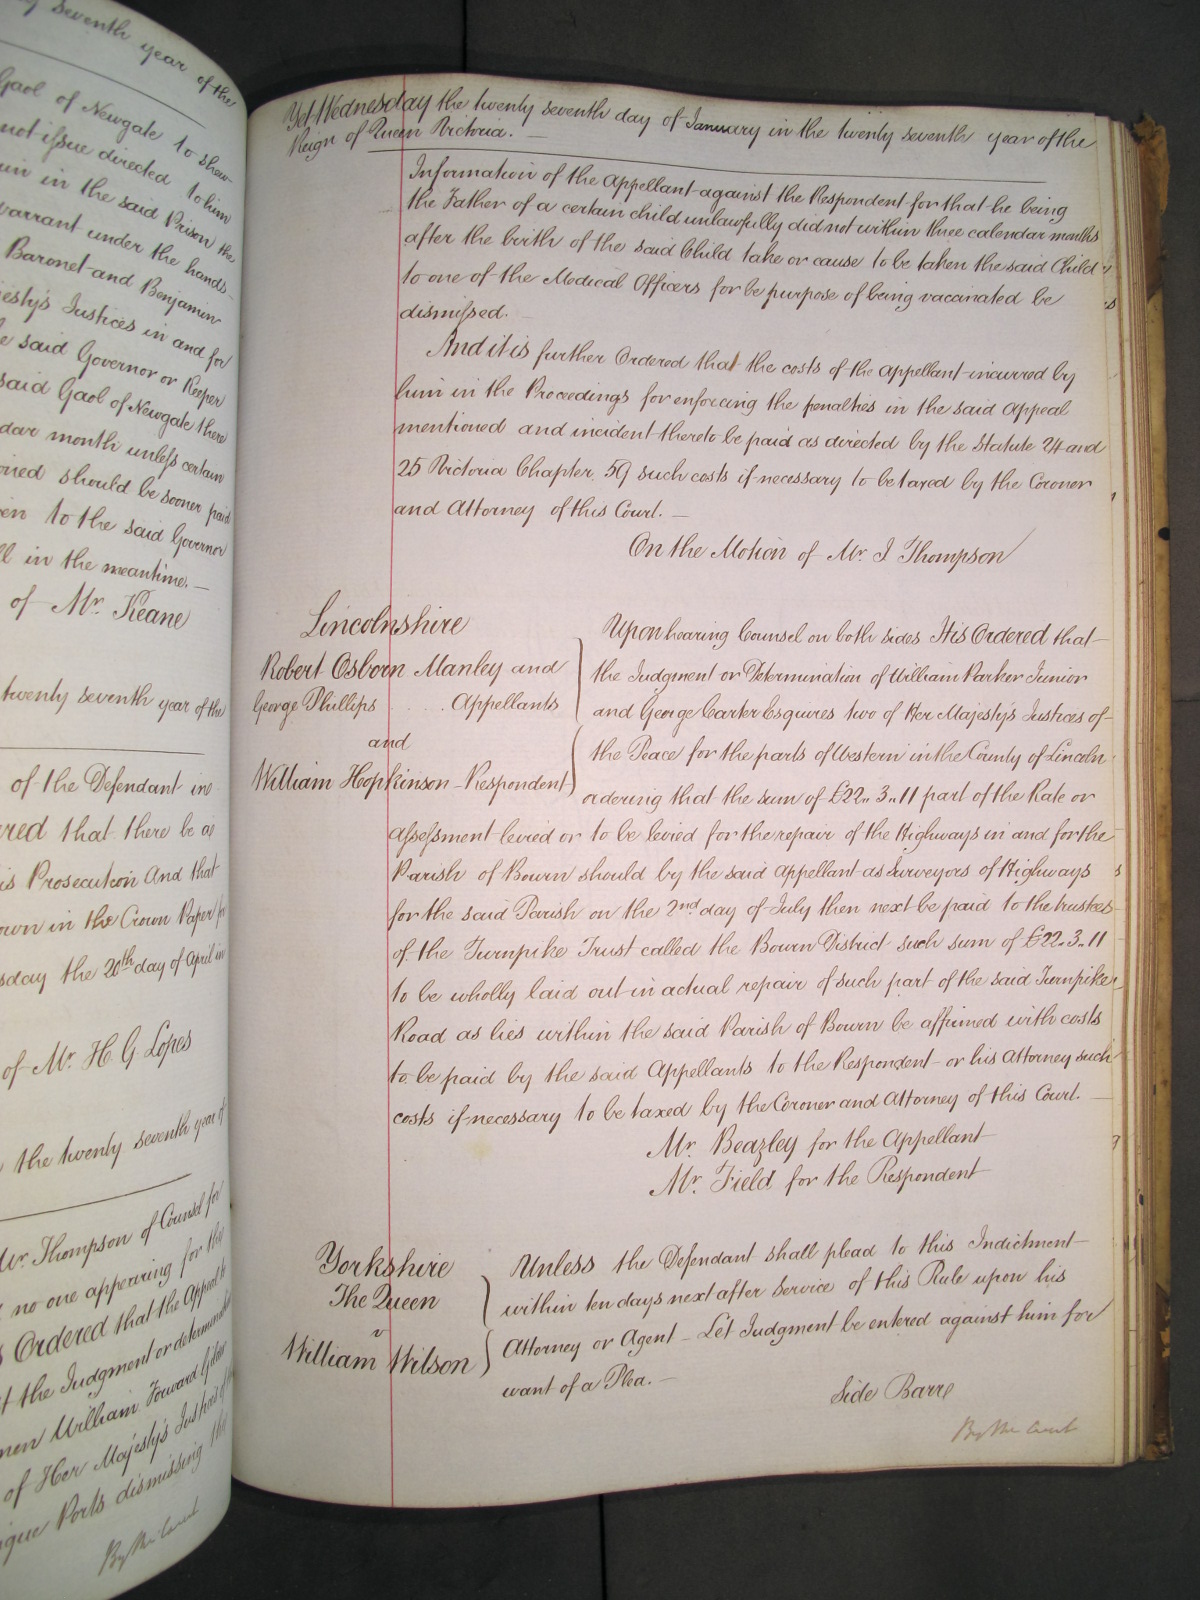 seventh year of the
Gaol of Newgate to shew
not issue directed to him
in the said Prison the
warrant under the hands
Baronet and Benjamin
Justices in and for
said Governor or Keeper
said Gaol of Newgate there
month unless certain
should be sooner paid
to the said Governor
in the meantime.
of Mr. Keane
twenty seventh year of the
of the Defendant in
that there be a
Prosecution And that
in the Crown Paper for
the 20th day of April in
of Mr. H. G. Lopes
the twenty seventh year of
Mr. Thompson of Counsel for
no one appearing for the
Ordered that the Appeal
the Judgment or determination
William Forward
of Her Majesty's Justices of
Ports dismissing the
By the Court
Yet Wednesday the twenty seventh day of January in the twenty seventh year of the
Reign of Queen Victoria.
Information of the Appellant against the Respondent for that he being
the Father of a certain child unlawfully did not within three calendar months
after the birth of the said Child take or cause to be taken the said Child
to one of the Medical Officers for be purpose of being vaccinated be
dismissed.
And it is further Ordered that the costs of the Appellant incurred by
him in the Proceedings for enforcing the penalties in the said Appeal
mentioned and incident thereto be paid as directed by the Statute 24 and
25 Victoria Chapter 59 such costs if necessary to be taxed by the Coroner
and Attorney of this Court.
On the Motion of Mr. J Thompson
Lincolnshire
Robert Osborn Manley and
George Phillips .... Appellants
and
William Hopkinson - Respondent
Upon hearing Counsel on both sides It is Ordered that
the Judgment or Determination of William Parker Junior
and George Carter Esquires two of Her Majesty's Justices of
the Peace for the parts of Western in the County of Lincoln
ordering that the sum of £22.. 3.. 11 part of the Rate or
assessment levied or to be levied for the repair of the Highways in and for the
Parish of Bourn should by the said appellant as Surveyors of Highways
for the said Parish on the 2nd day of July then next be paid to the trustees
of the Turnpike Trust called the Bourn District such sum of £22.. 3.. 11
to be wholly laid out in actual repair of such part of the said Turnpike
Road as lies within the said Parish of Bourn be affirmed with costs
to be paid by the said Appellants to the Respondent or his Attorney such
costs if necessary to be taxed by the Coroner and Attorney of this Court.
Mr. Beazley for the Appellant
Mr. Field for the Respondent
Yorkshire
The Queen
v
William Wilson
Unless the Defendant shall plead to this Indictment
within ten days next after Service of this Rule upon his
Attorney or Agent - Let Judgment be entered against him for
want of a Plea.
Side Barre
By the Court